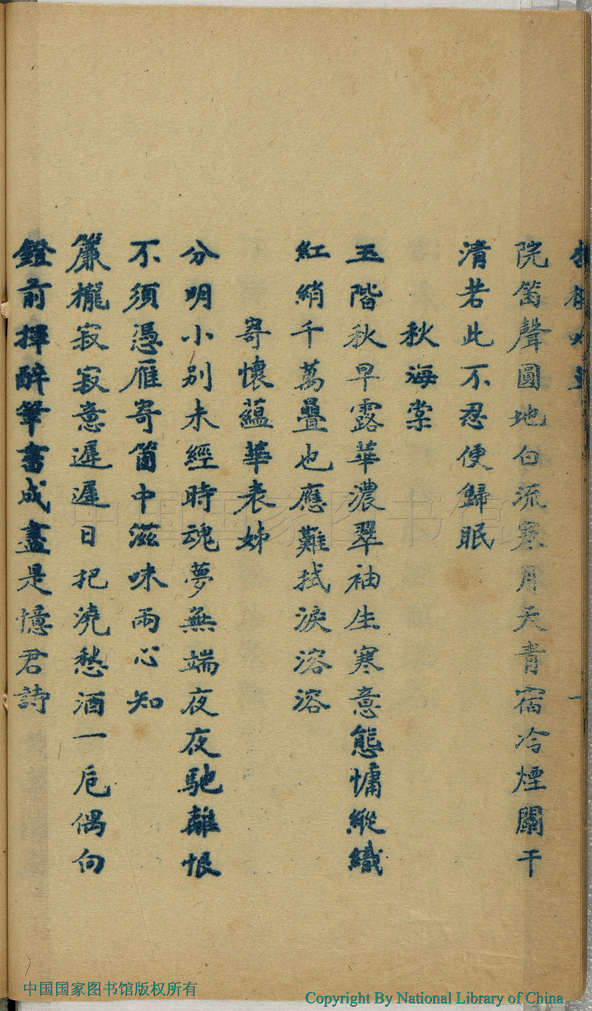 院笛聲圓地白流寒月天青宿冷煙闌干
清若此不忍便歸眠
秋海棠
玉階秋早露華濃翠袖生寒意態慵縱織
紅綃千萬疊也應難拭淚溶溶
寄懷蘊華表姊
分明小別未經時魂夢無端夜夜馳離恨
不須憑雁寄箇中滋味兩心知
簾櫳寂寂意遲遲日把澆愁酒一卮偶向
鐙前揮醉筆書成盡是憶君詩
中国国家图书馆
中国国家图书馆版权所有
Copyright By National Library of China